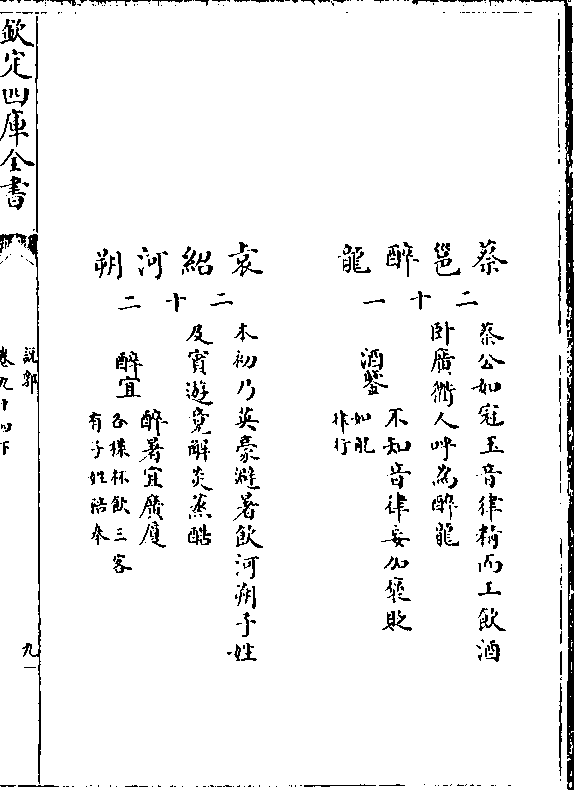 蔡邕醉龍
二十一
蔡公如冠玉音律精而工飲酒
卧廣衢人呼為醉龍
酒鑒
不知音律妄加褒貶
袁紹河朔
二十二
本初乃英豪避暑飲河朔子姓
及賓遊竟解炎蒸酷
醉宜
醉暑宜廣厦
各揀杯飲三客
有子姓陪奉
欽定四庫全書
說郛
卷九十四下
九